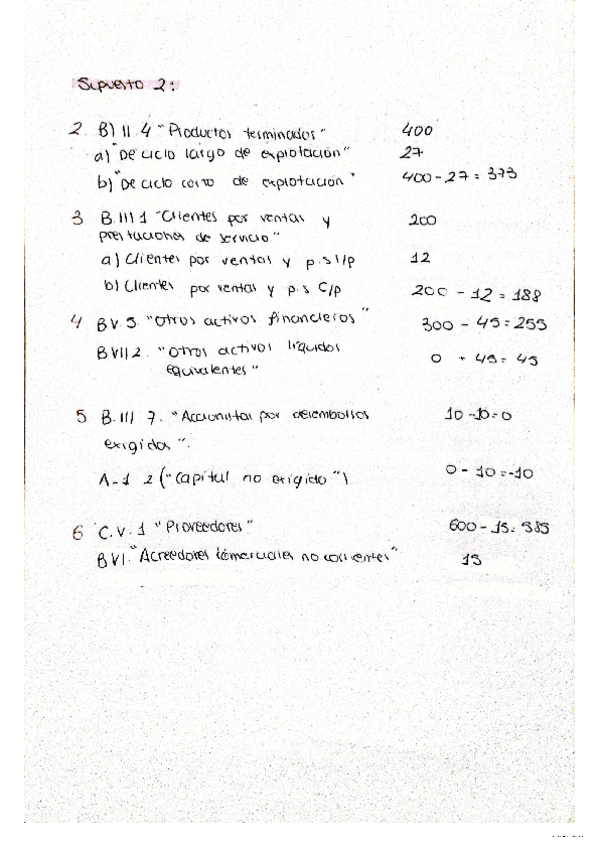 Supuesto 2:
2. B) II. 4 "Productos terminados" 400
a) "De ciclo largo de explotación" 27
b) "De ciclo corto de explotación" 400 - 27 = 373
3. B.III 1 "Clientes por ventas y 200
prestaciones de servicio"
a) Clientes por ventas y p.s l/p 12
b) Clientes por ventas y p.s C/p 200 - 12 = 188
4 B V. 5. "Otros activos financieros" 300 - 45 = 255
B VII 2. "Otros activos líquidos 0 + 45 = 45
equivalentes"
5 B. III 7. "Accionistas por desembolsos 10 - 10 = 0
exigidos".
A-1 2 ("Capital no exigido") 0 - 10 = -10
6 C.V.1 "Proveedores" 600 - 15 = 585
B VI. "Acreedores comerciales no corrientes" 15